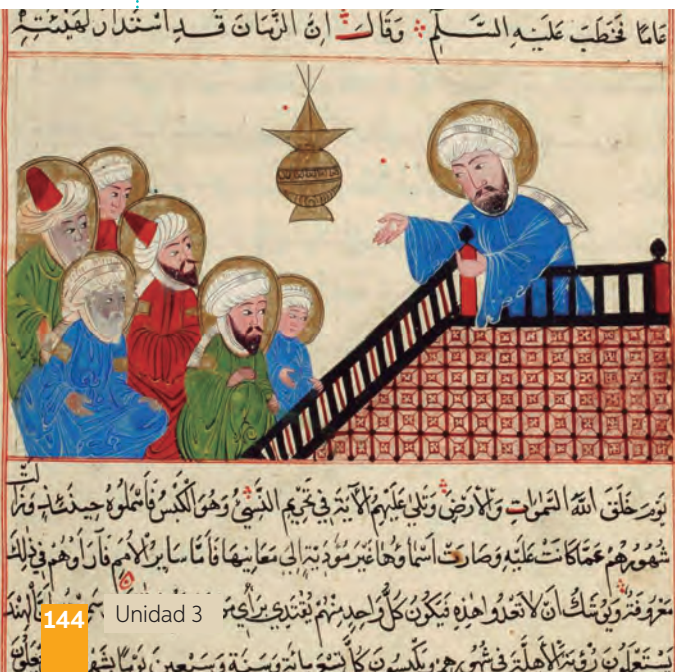 عامًا فخَطَبَ عَلَيْهِ السَّلَم وَقَالَ إنَّ الزَّمَانَ قَدِ اسْتَدَارَ لهَيْئَتِهِ
يَوْمَ خَلَقَ اللهُ السَّمَوَاتِ وَالْأَرْضَ وَتَلَى عَلَيْهِمُ الْآيَةَ فِي تَحْرِيمِ النَّسِيّ وَهُوَ الْكَبْسُ فَأَهْمَلُوهُ حِينَئِذٍ وَزَالَتْ
شُهُورُهُمْ عَمَّا كَانَتْ عَلَيْهِ وَصَارَتْ أَسْمَاؤُهَا غَيْرَ مُؤَدِّيَةٍ إِلَى مَعَانِيهَا فَأَمَّا سَايِرُ الْأُمَمِ فَآرَاؤُهُمْ فِي ذَلِكَ
مَعْرُوفَةٌ وَيُوشِكُ أَنْ لَا تَعْدُوَا هَذِهِ فَيَكُونُ كُلُّ وَاحِدٍ مِنْهُمْ يَقْتَدِي بِرَأْيِ
144 Unidad 3
يَسْتَعْمِلُونَ رُؤْيَةَ الْأَهِلَّةِ فِي شُهُورِهِمْ وَيَكْبِسُونَ كُلَّ تِسْعِ مِائَةٍ وَسِتَّةٍ وَسَبْعِينَ يَوْمًا